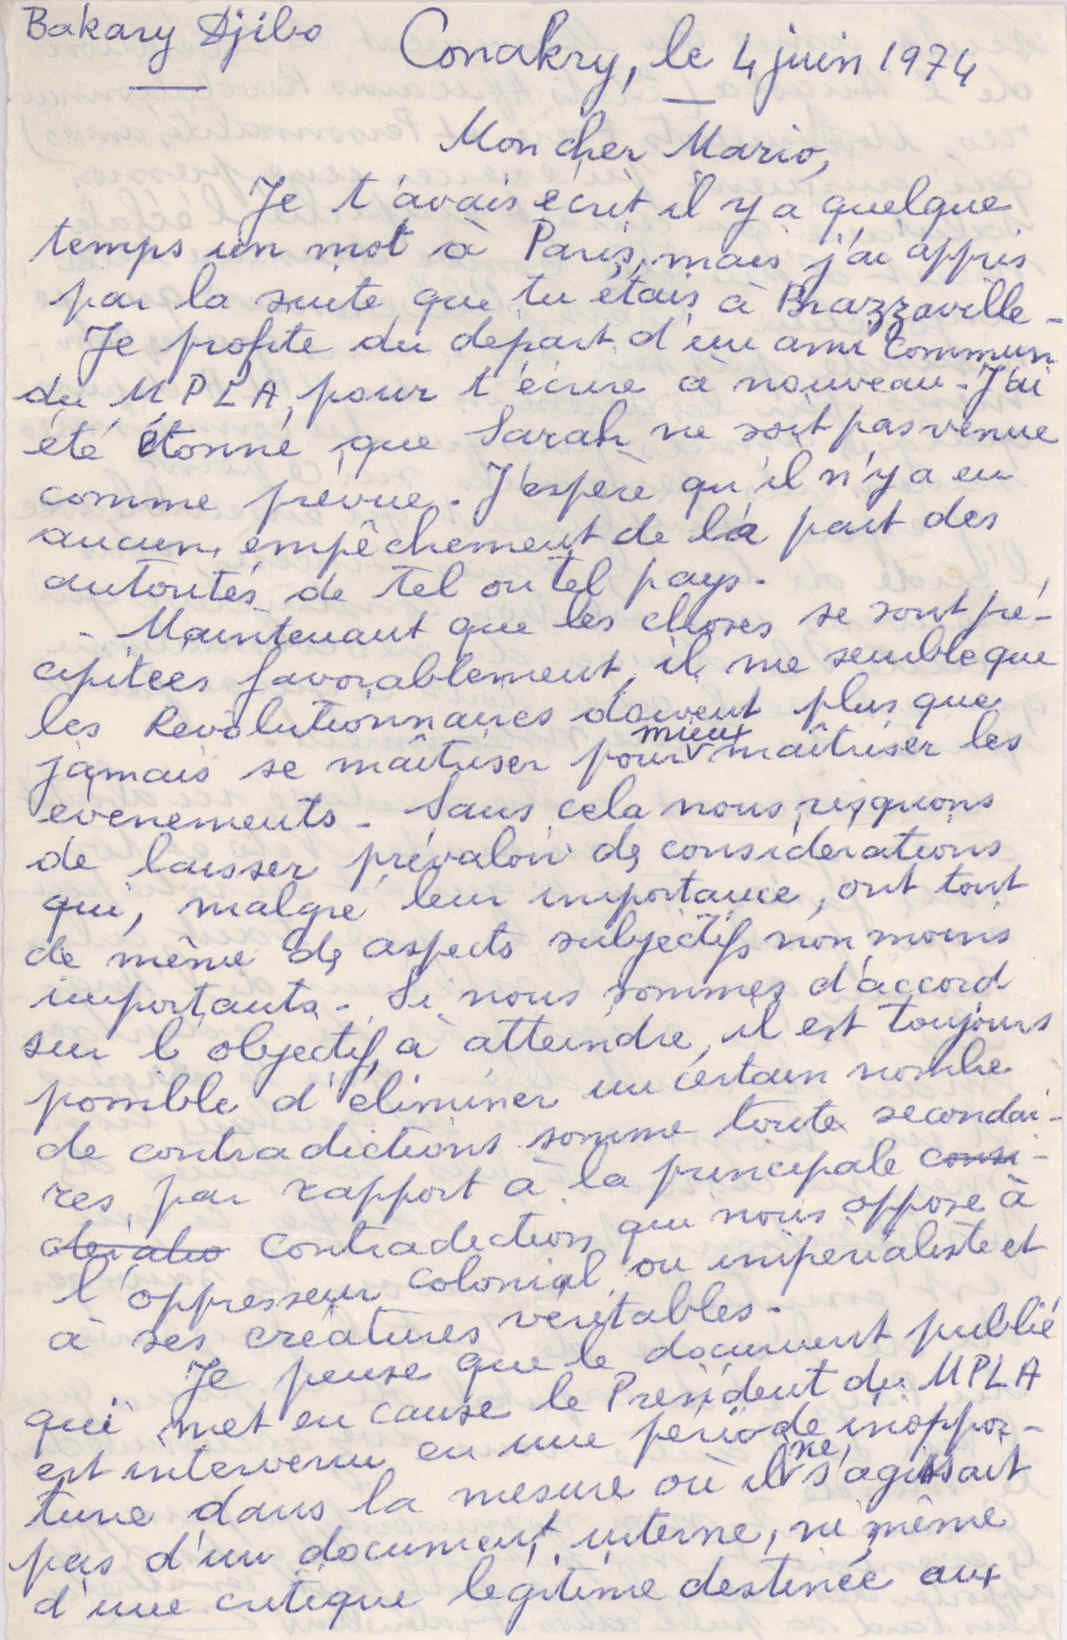 Bakary Djibo
Conakry, le 4 juin 1974
Mon cher Mario,
Je t'avais écrit il y a quelque
temps un mot à Paris, mais j'ai appris
par la suite que tu étais à Brazzaville -
Je profite du départ d'un ami commun
du MPLA, pour t'écrire à nouveau - J'ai
été étonné que Sarah ne soit pas venue
comme prévue. J'espère qu'il n'y a eu
aucun empêchement de la part des
autorités de tel ou tel pays.
- Maintenant que les choses se sont pré-
cipitées favorablement, il me semble que
les Révolutionnaires doivent plus que
jamais se maîtriser pour mieux maîtriser les
évenements - Sans cela nous risquons
de laisser prévaloir des considérations
qui, malgré leur importance, ont tout
de même des aspects subjectifs non moins
importants - Si nous sommes d'accord
sur l'objectif à atteindre, il est toujours
possible d'éliminer un certain nombre
de contradictions somme toute secondai-
res par rapport à la principale consi-
dératio contradiction qui nous oppose à
l'oppresseur colonial ou impérialiste et
à ses créatures veritables -
Je pense que le document publié
qui met en cause le Président du MPLA
est intervenu en une période inoppor-
tune dans la mesure où il ne s'agissait
pas d'un document interne, ni même
d'une critique légitime destinée aux